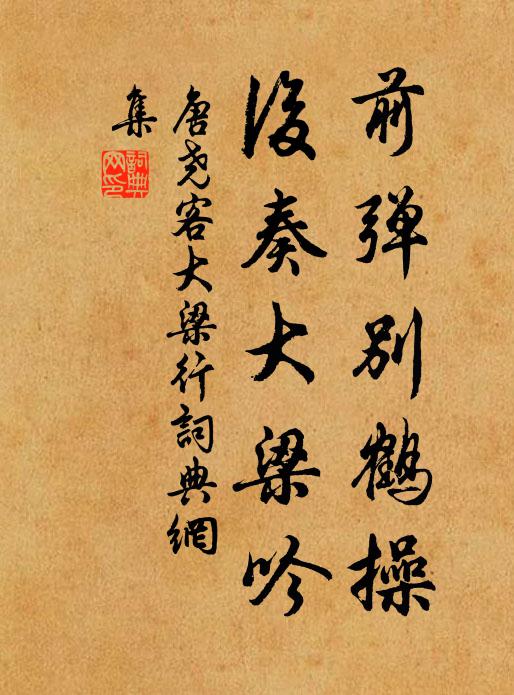 前弹别鹤操
後奏大梁吟
唐尧客大梁行詞典網
集
詞典
网印